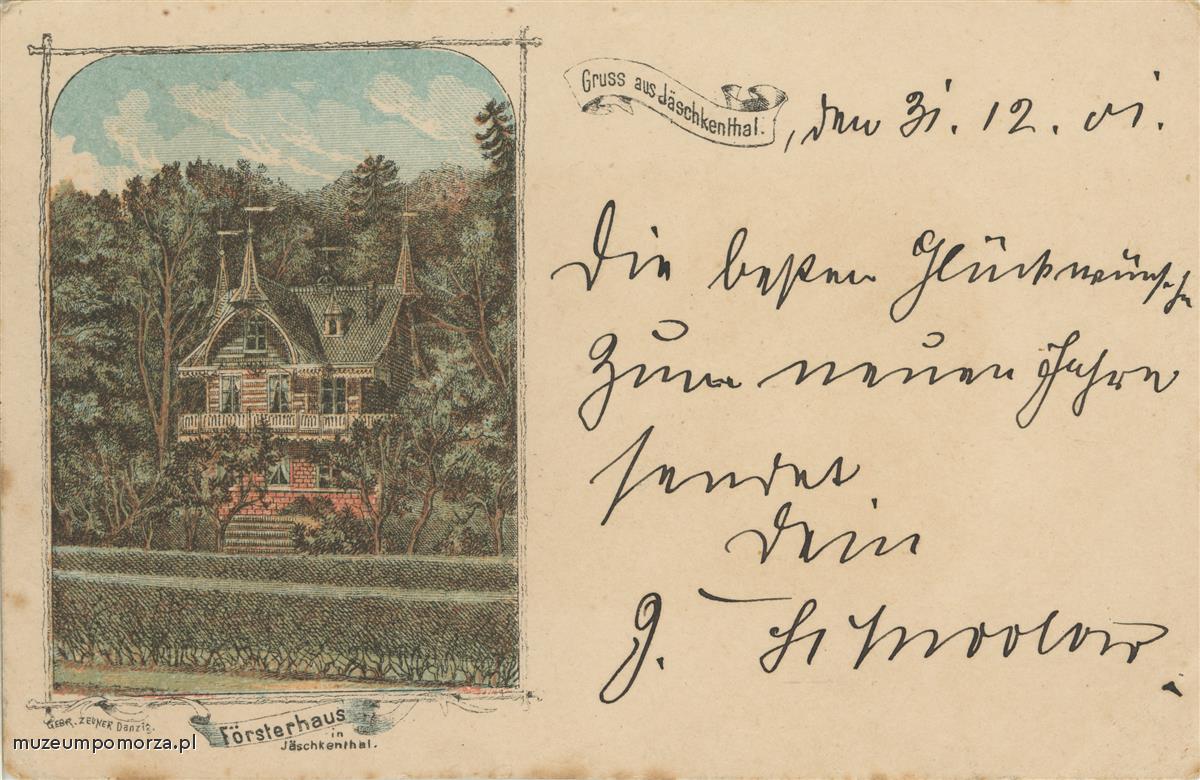 Gruss aus Jäschkenthal.
, den 31. 12. 01.
Die besten Glückwünsche
Zum neuen Jahre
sendet
Dein
J.
GEBR. ZEUNER Danzig.
Försterhaus
in
Jäschkenthal.
muzeumpomorza.pl